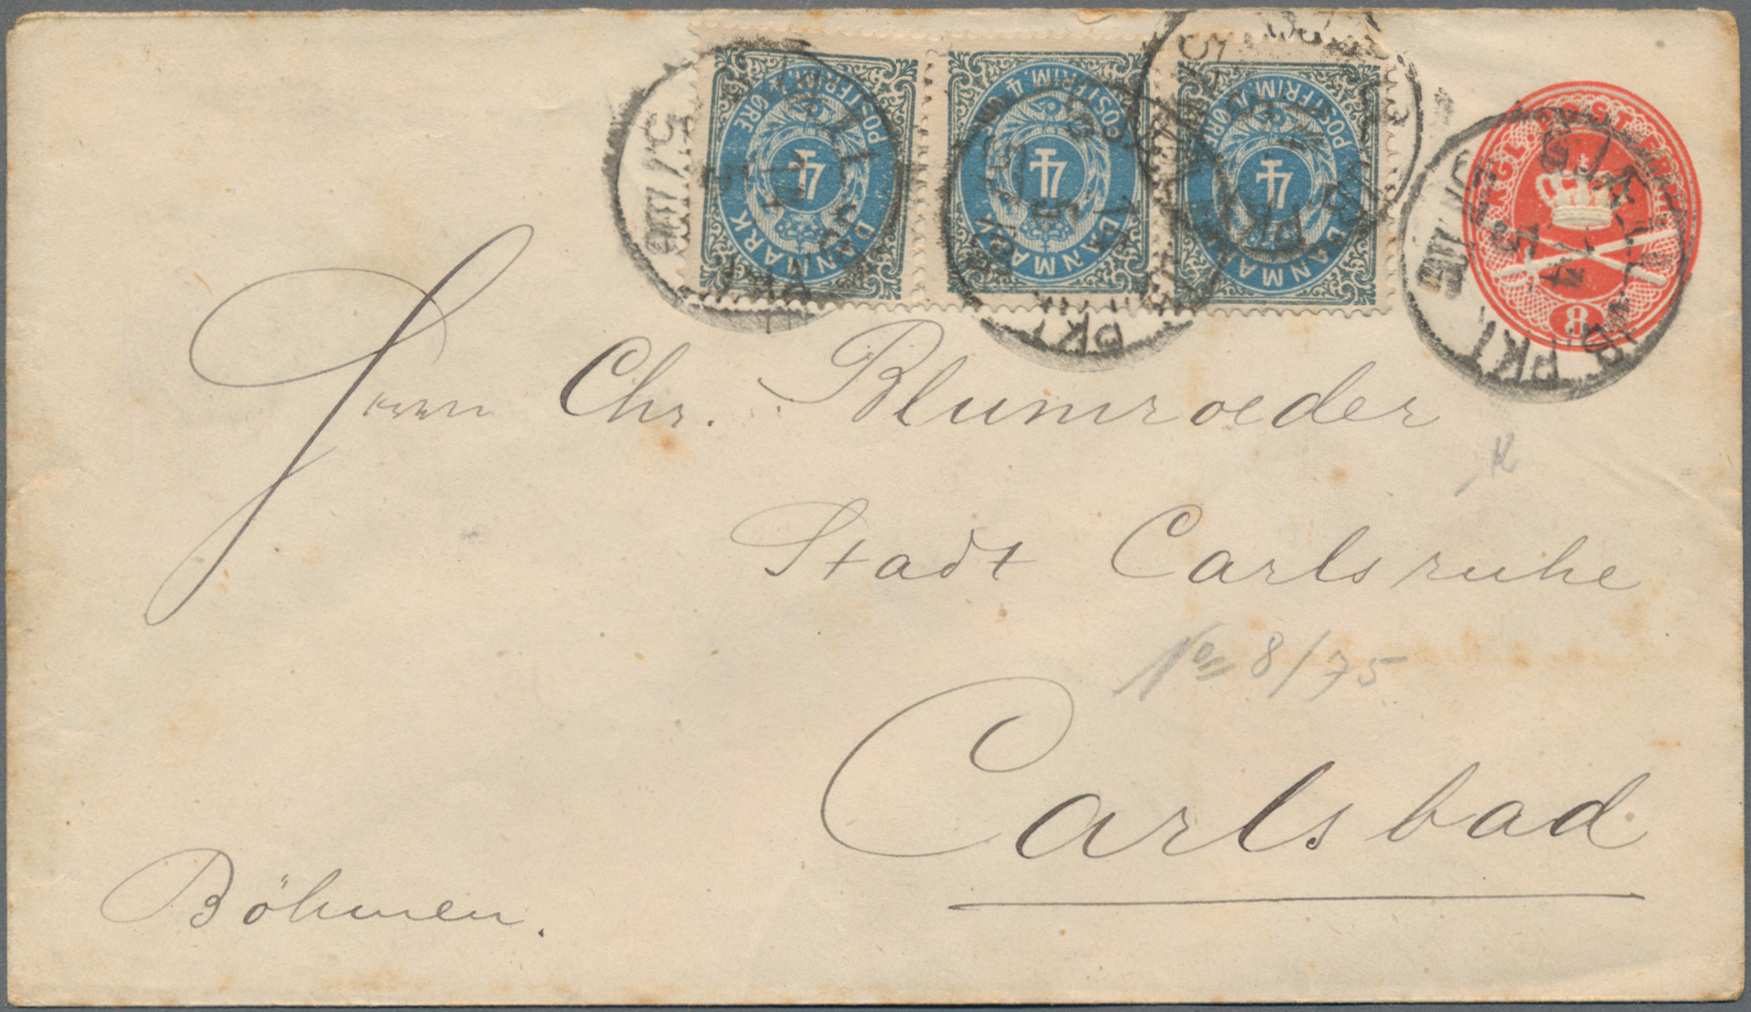 DANMARK POSTFRIM. 4 ØRE
DANMARK POSTFRIM. 4
DANMARK POSTFRIM. 4 ØRE
4
4
4
KGL. POST FRM.
8
Herrn Chr. Blumroeder
Stadt Carlsruhe
8/75
Carlsbad
Böhmen.